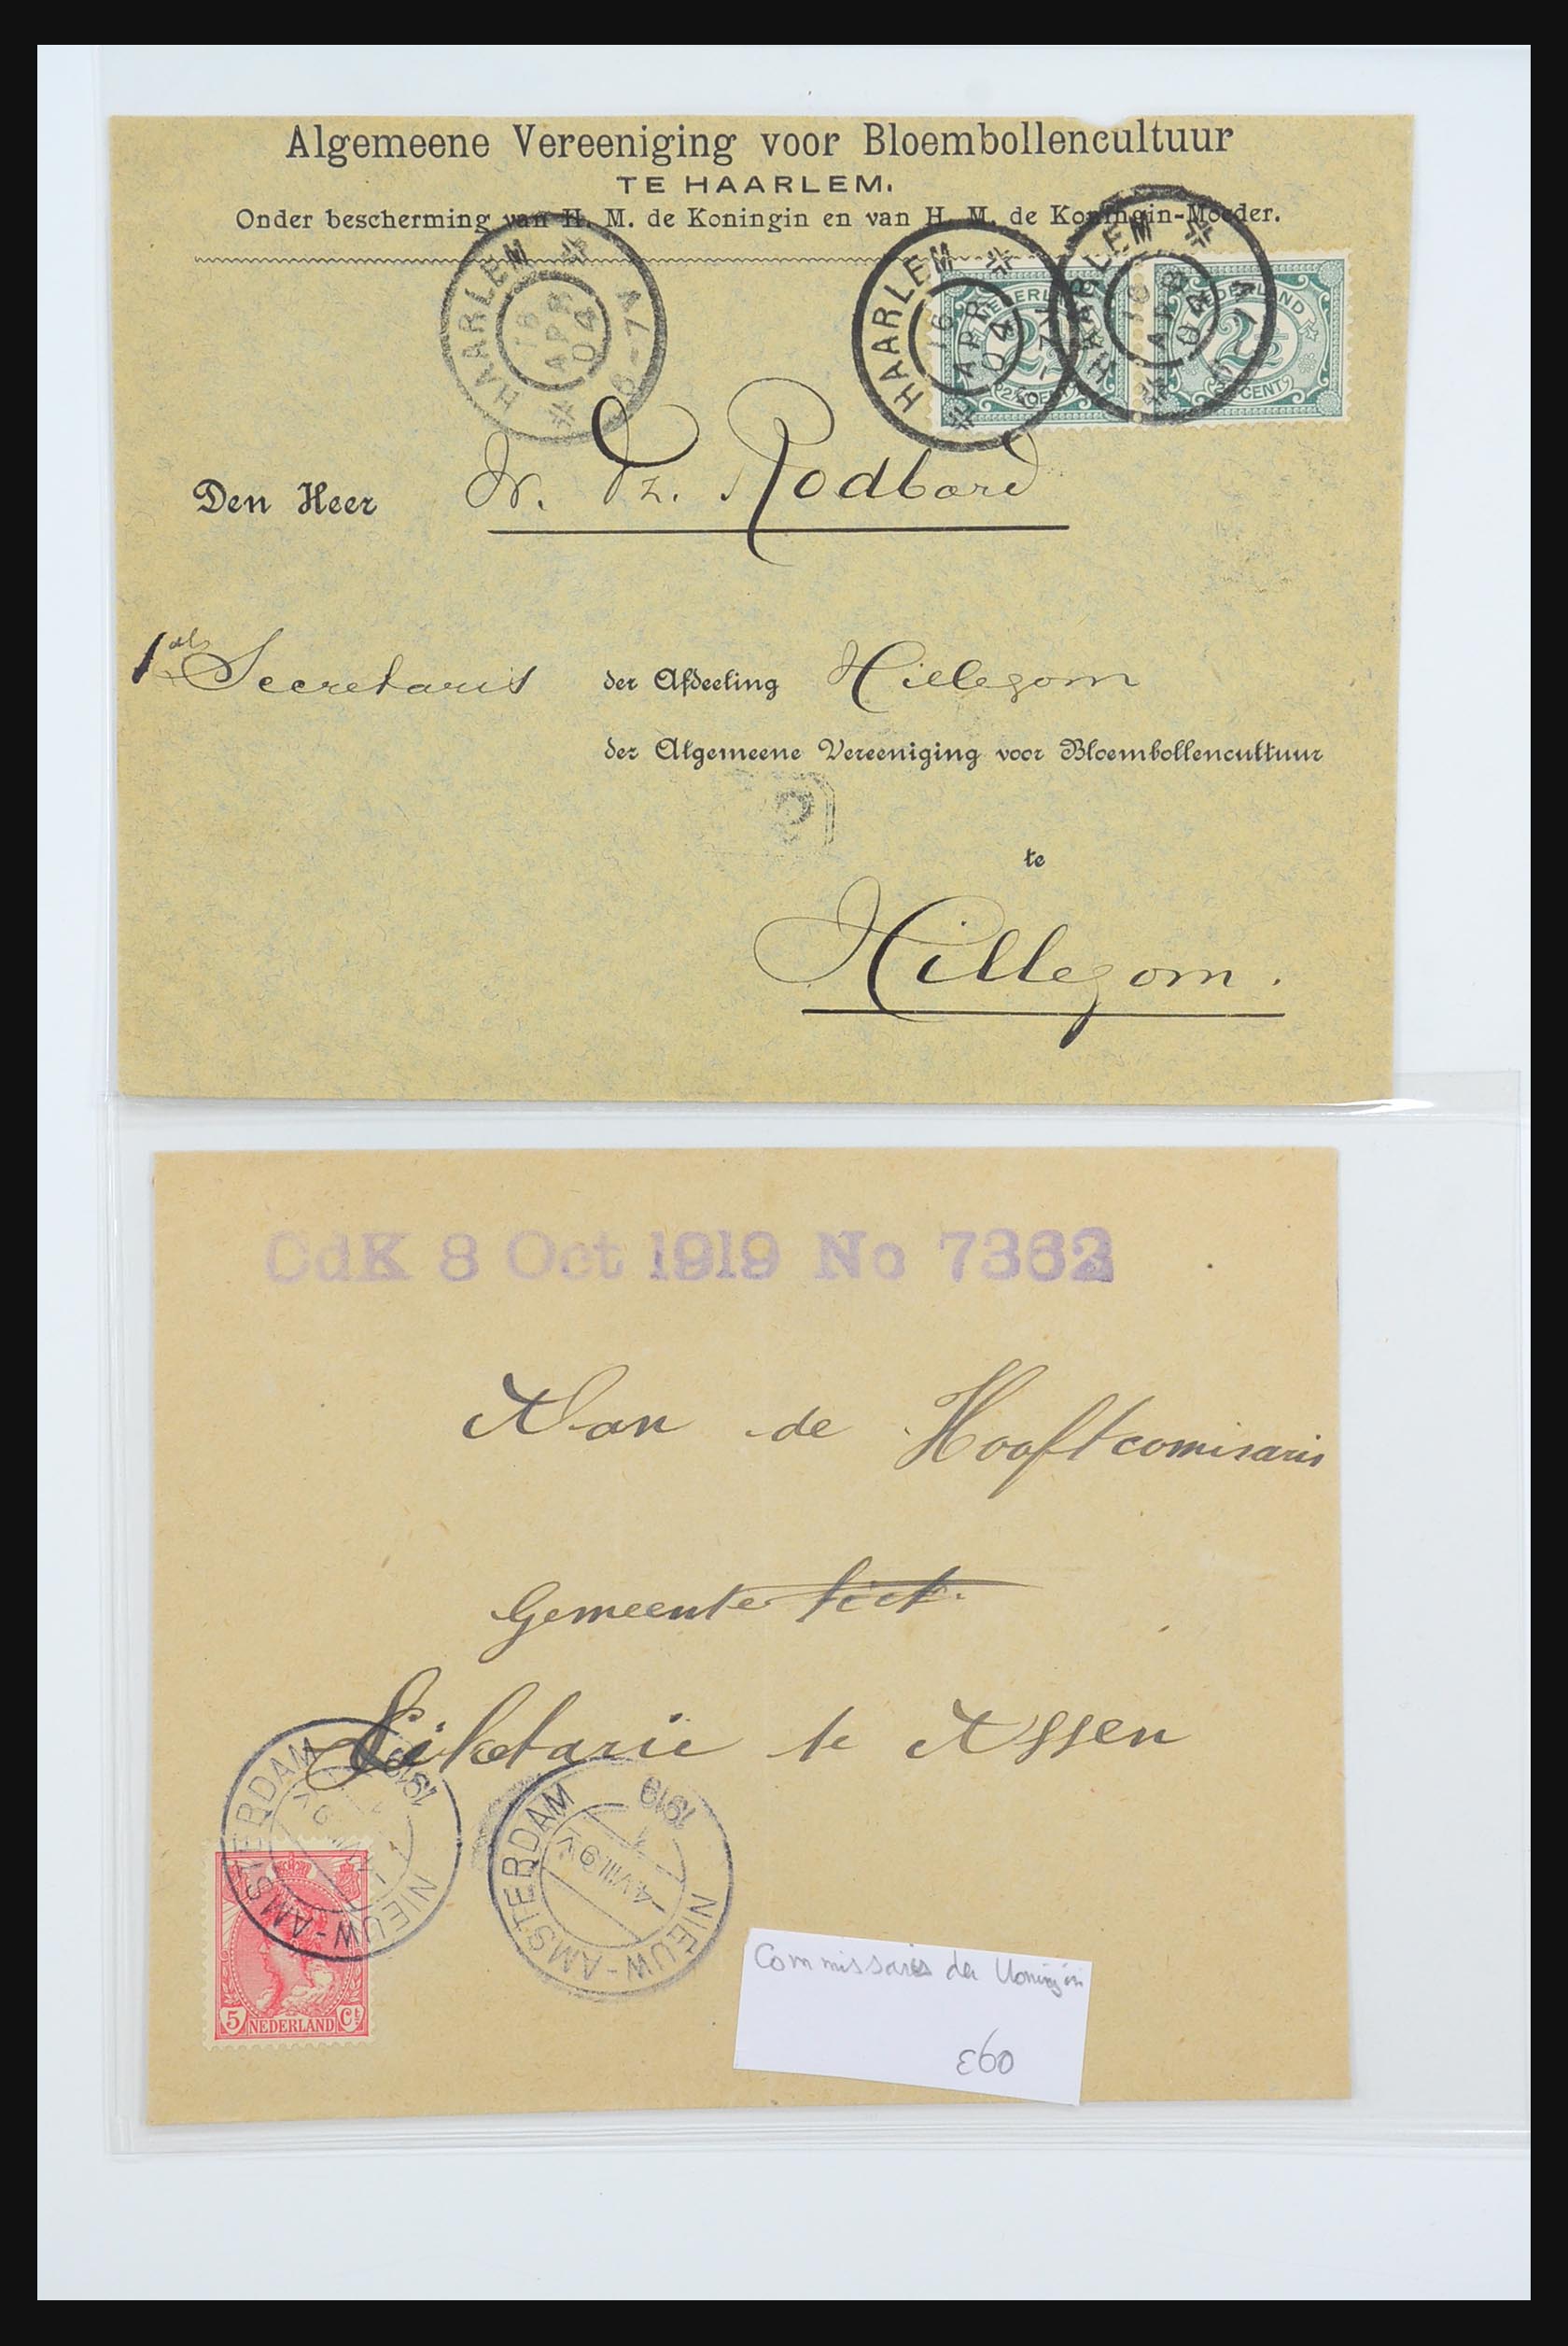 Algemeene Vereeniging voor Bloembollencultuur
TE HAARLEM.
Onder bescherming van H. M. de Koningin en van H. M. de Koningin-Moeder.
HAARLEM
16 APR 04
HAARLEM
16 APR 04
HAARLEM
16 APR 04
NEDERLAND
2½
NEDERLAND
2½
CENT
Den Heer Dr. Dz. Rodbard
1ste Secretaris der Afdeeling Hillegom
der Algemeene Vereeniging voor Bloembollencultuur
te
Hillegom.
CdK 8 Oct 1919 No 7362
Aan de Hooftcomisaris
Gemeente
te Assen
NIEUW-AMSTERDAM
1919
NIEUW-AMSTERDAM
4 VIII 9 V
1919
5 NEDERLAND Ct
Commissaris der Koningin
£60